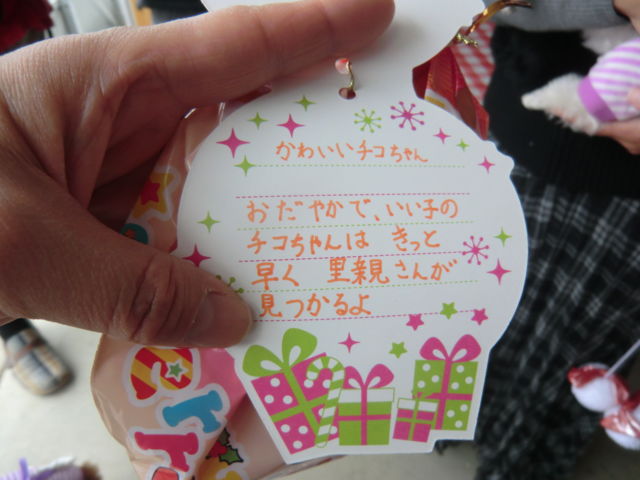 かわいいチコちゃん
おだやかで、いい子の
チコちゃんは きっと
早く 里親さんが
見つかるよ